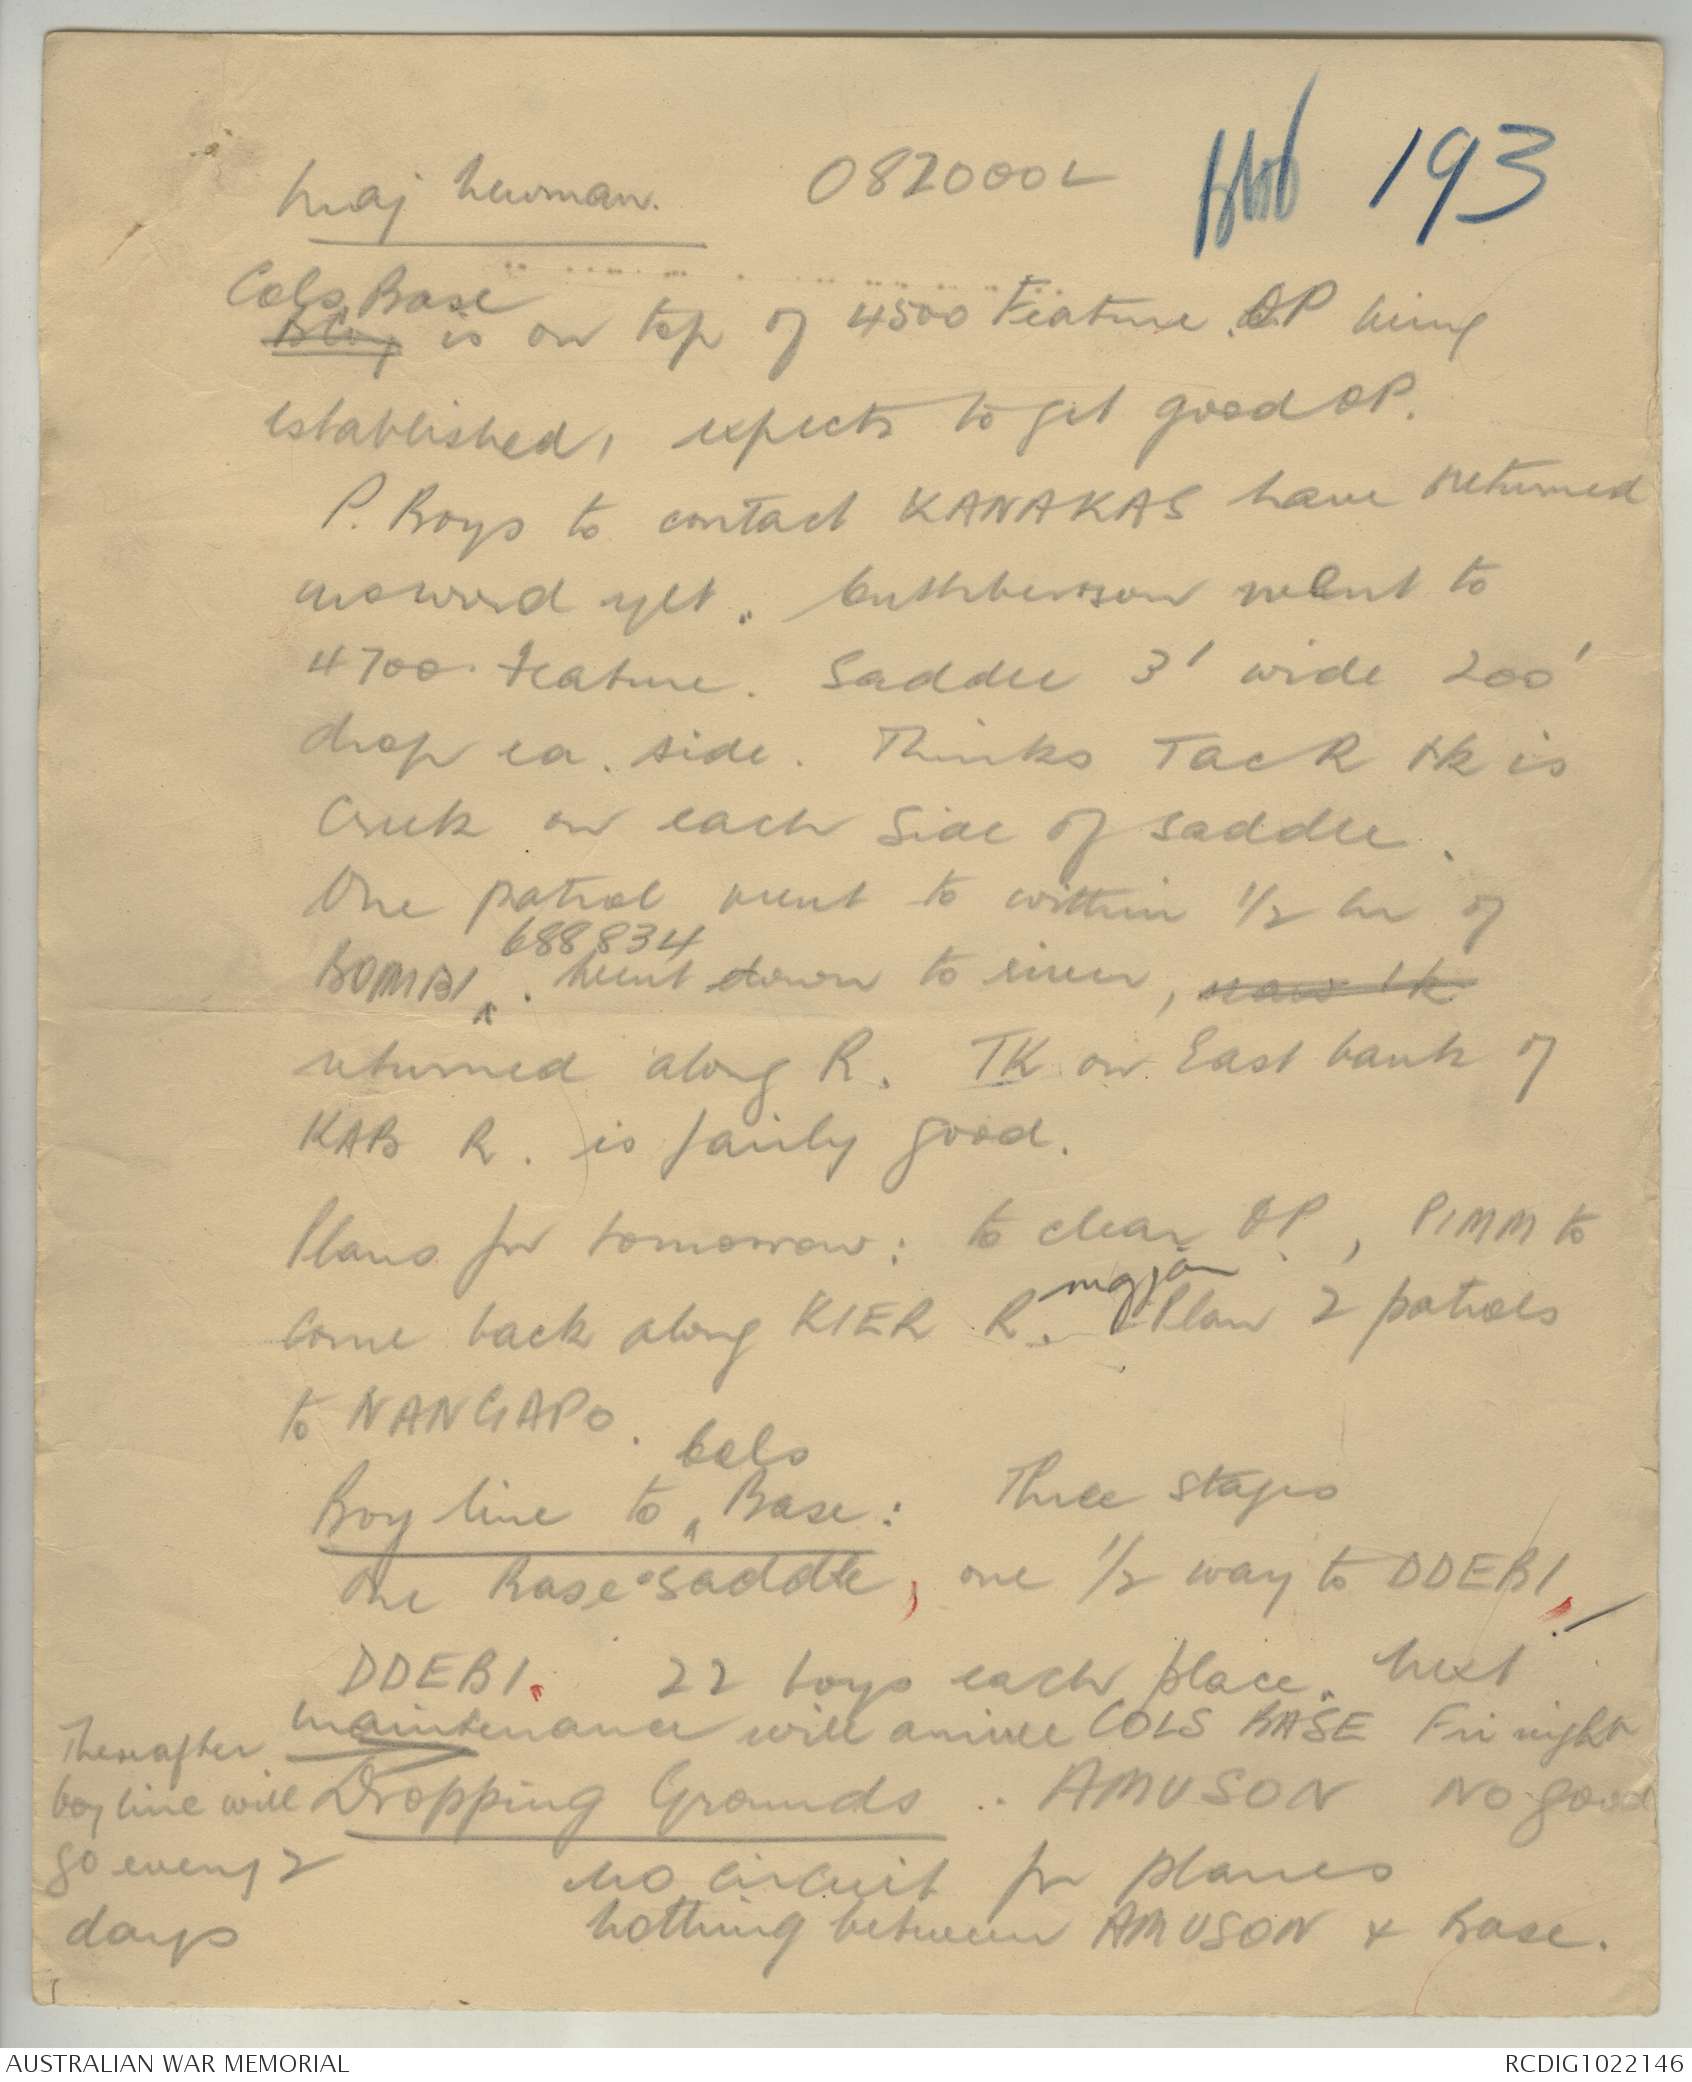 Maj Newman. 082000L 193
Cols Base
B Coy is on top of 4500 Feature. OP being
established, expects to get good OP.
P. Boys to contact KANAKAS have returned
no word yet. Cuthbertson went to
4700. feature. Saddle 3' wide 200'
drop ea. side. Thinks Tack tk is
Creek on each side of saddle.
One patrol went to within 1/2 hr of
688834
BOMBI. Went down to river,
returned along R. TK on East bank of
KAB R. is fairly good.
Plans for tomorrow: to clear OP, PIMM to
come back along KIER R. Plan 2 patrols
to NANGAPO.
Cols
Boy line to Base: Three stages
One Base saddle, one 1/2 way to DDEBI,
DDEBI. 22 boys each place. Next
maintenance will arrive COLS BASE Fri night
Thereafter
boy line will
go every 2
days
Dropping Grounds. AMUSON No good
no circuit for planes
Nothing between AMUSON & Base.
AUSTRALIAN WAR MEMORIAL RCDIG1022146